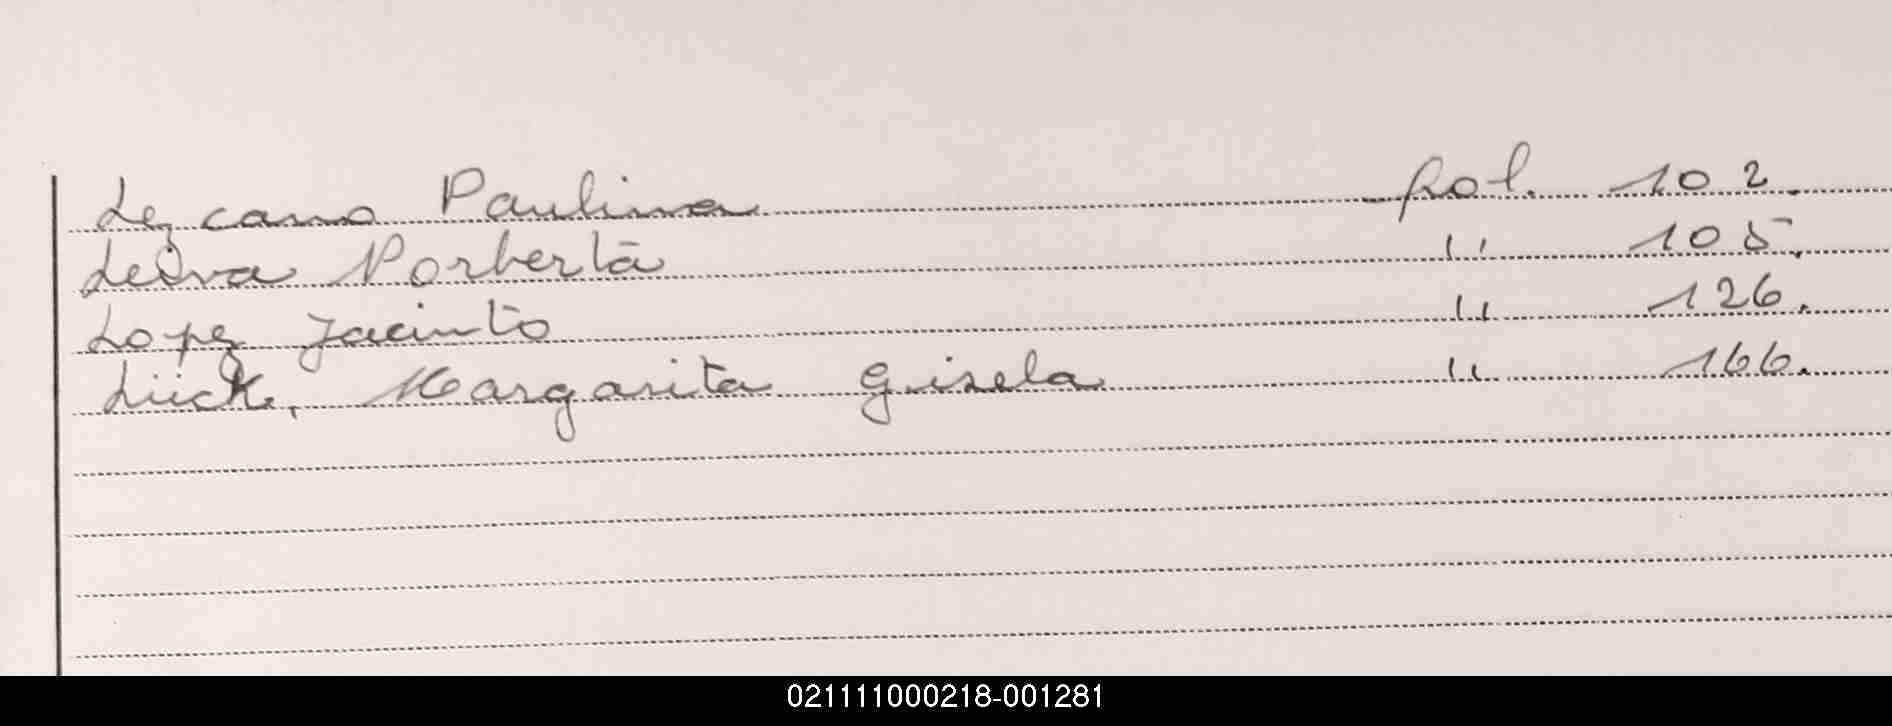 Lezcano Paulina fol. 102.
Leiva Norberta " 105.
Lopez Jacinto " 126.
Lück, Margarita Gisela " 166.
021111000218-001281